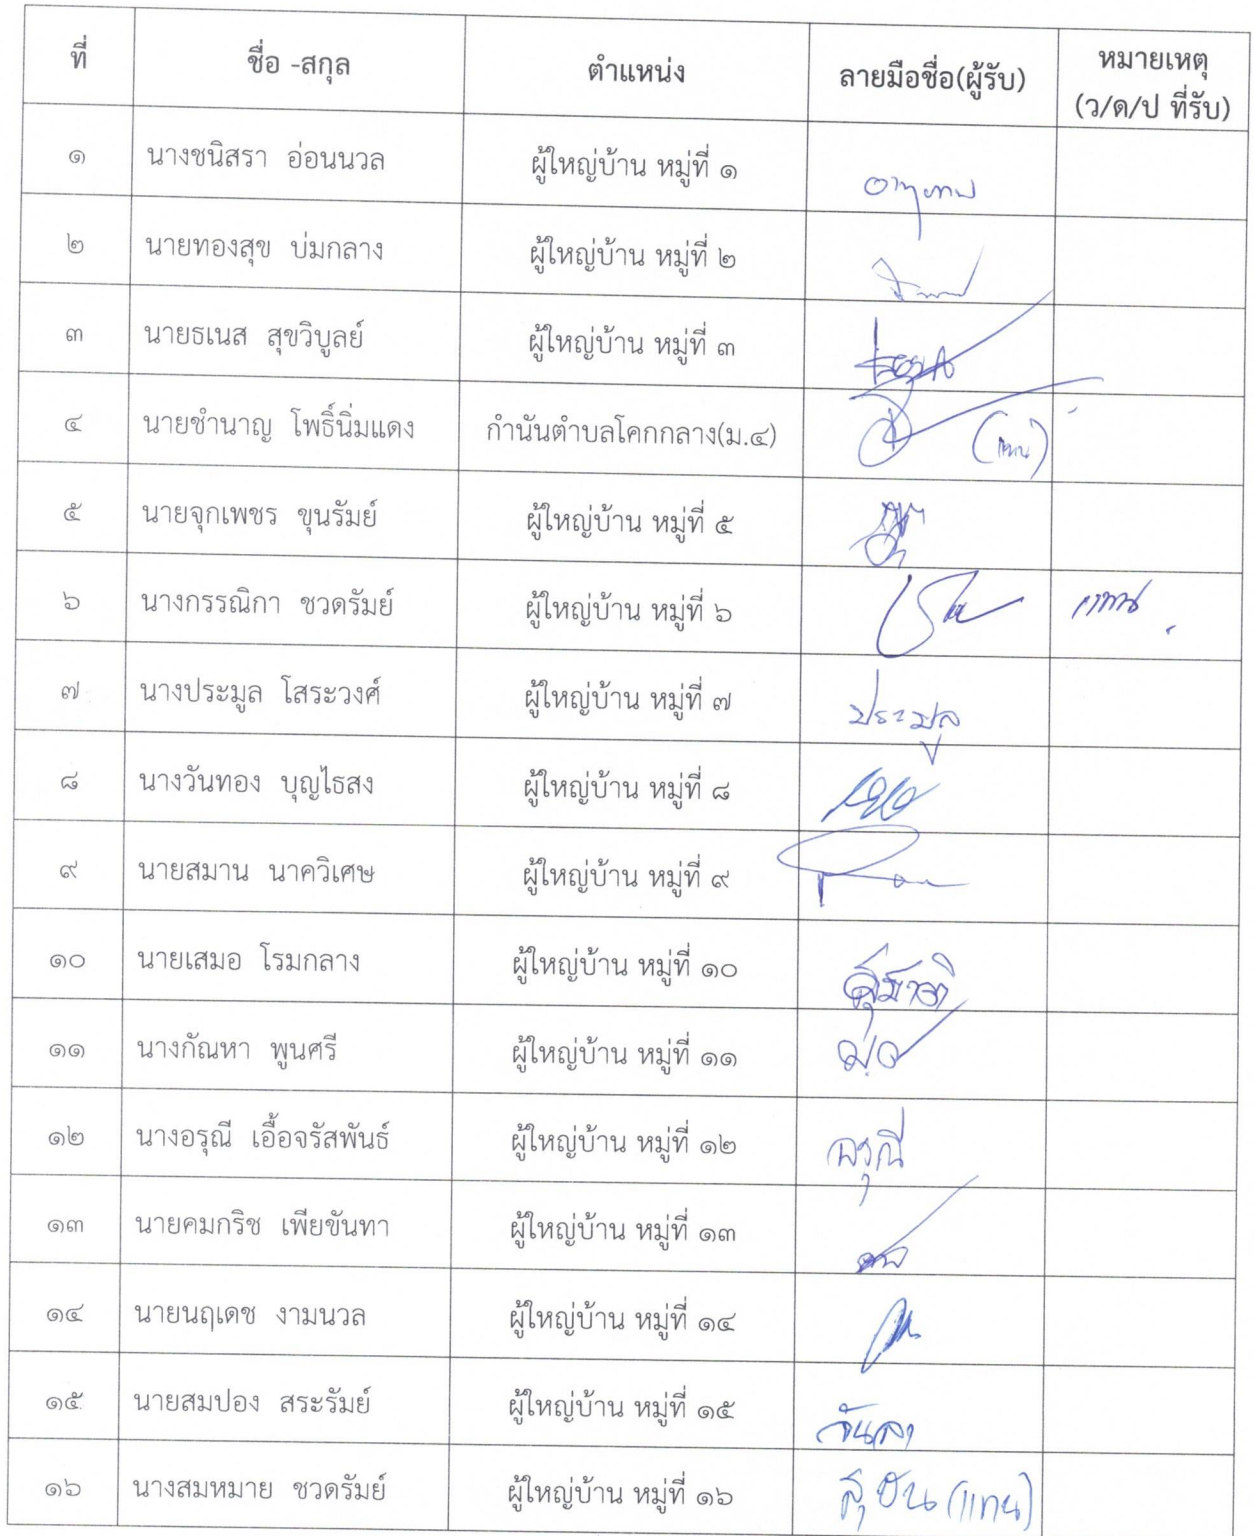 ที่ ชื่อ -สกุล ตำแหน่ง ลายมือชื่อ(ผู้รับ) หมายเหตุ
(ว/ด/ป ที่รับ)
๑ นางชนิสรา อ่อนนวล ผู้ใหญ่บ้าน หมู่ที่ ๑
๒ นายทองสุข บ่มกลาง ผู้ใหญ่บ้าน หมู่ที่ ๒
๓ นายธเนส สุขวิบูลย์ ผู้ใหญ่บ้าน หมู่ที่ ๓
๔ นายชำนาญ โพธิ์นิ่มแดง กำนันตำบลโคกกลาง(ม.๔) (แทน)
๕ นายจุกเพชร ขุนรัมย์ ผู้ใหญ่บ้าน หมู่ที่ ๕
๖ นางกรรณิกา ชวดรัมย์ ผู้ใหญ่บ้าน หมู่ที่ ๖ แทน
๗ นางประมูล โสระวงศ์ ผู้ใหญ่บ้าน หมู่ที่ ๗ ประมูล
๘ นางวันทอง บุญไธสง ผู้ใหญ่บ้าน หมู่ที่ ๘
๙ นายสมาน นาควิเศษ ผู้ใหญ่บ้าน หมู่ที่ ๙
๑๐ นายเสมอ โรมกลาง ผู้ใหญ่บ้าน หมู่ที่ ๑๐
๑๑ นางกัณหา พูนศรี ผู้ใหญ่บ้าน หมู่ที่ ๑๑
๑๒ นางอรุณี เอื้อจรัสพันธ์ ผู้ใหญ่บ้าน หมู่ที่ ๑๒ อรุณี
๑๓ นายคมกริช เพียขันทา ผู้ใหญ่บ้าน หมู่ที่ ๑๓
๑๔ นายนฤเดช งามนวล ผู้ใหญ่บ้าน หมู่ที่ ๑๔
๑๕ นายสมปอง สระรัมย์ ผู้ใหญ่บ้าน หมู่ที่ ๑๕
๑๖ นางสมหมาย ชวดรัมย์ ผู้ใหญ่บ้าน หมู่ที่ ๑๖ (แทน)